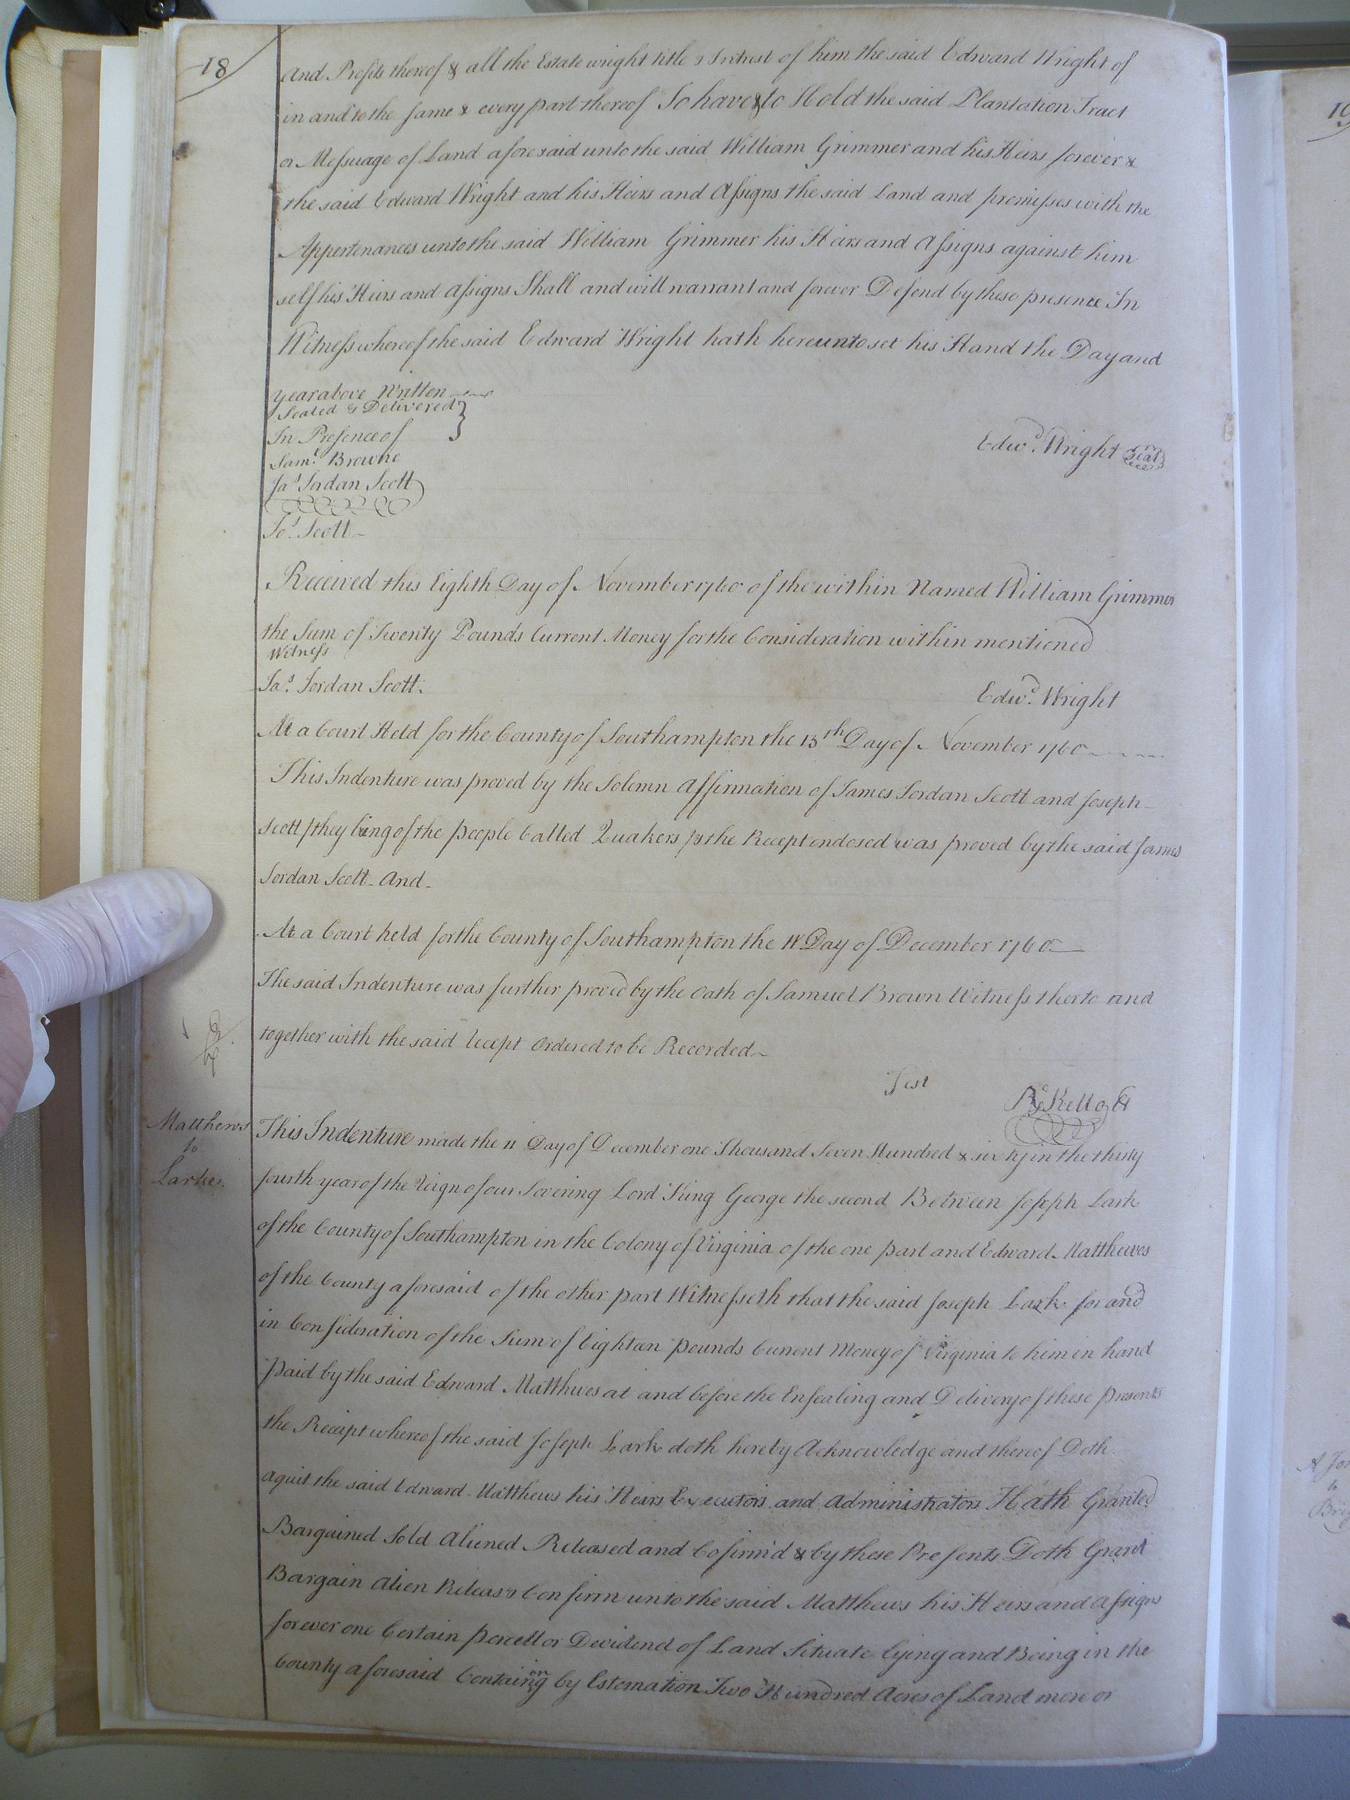 18
And Profits thereof & all the Estate wright title & Intrest of him the said Edward Wright of
in and to the same & every part thereof To have & to Hold the said Plantation Tract
or Messuage of Land aforesaid unto the said William Grimmer and his Heirs forever &
the said Edward Wright and his Heirs and Assigns the said Land and premisses with the
Appertenances unto the said William Grimmer his Heirs and Assigns against him
self his Heirs and Assigns Shall and will warrant and forever Defend by these presence In
Witness whereof the said Edward Wright hath hereunto set his Hand the Day and
year above Written
Sealed & Delivered }
In Presence of
Edwd. Wright Seal
Saml. Browne
Jas. Jordan Scott
Jos. Scott
Received this Eighth Day of November 1760 of the within Named William Grimmer
the Sum of Twenty Pounds Current Money for the Consideration within mentioned
Witness
Jas. Jordan Scott.
Edwd. Wright
At a Court Held for the County of Southampton the 13th Day of November 1760
This Indenture was proved by the Solemn Affirmation of James Jordan Scott and Joseph
Scott /they being of the people Called Quakers/ & the Recept endosed was proved by the said James
Jordan Scott And
At a Court held for the County of Southampton the 11 Day of December 1760
The said Indenture was further proved by the oath of Samuel Brown Witness therto and
together with the said Recept Ordered to be Recorded
Test
Rd. Kello Ck
Matthews
to
Larke.
This Indenture made the 11 Day of December one Thousand Seven Hundred & sixty in the thirty
fourth year of the Reign of our Sovering Lord King George the second Between Joseph Lark
of the County of Southampton in the Colony of Virginia of the one part and Edward Matthews
of the County aforesaid of the other part Witnesseth that the said Joseph Lark for and
in Consideration of the Sum of Eighteen pounds Current Money of Virginia to him in hand
paid by the said Edward Matthews at and before the Ensealing and Delivery of these presents
the Receipt whereof the said Joseph Lark doth hereby Acknowledge and thereof Doth
aquit the said Edward Matthews his Heirs Executors and Administrators Hath Granted
Bargained Sold Aliened Released and Cofirm'd & by these Presents Doth Grant
Bargain Alien Release & Confirm unto the said Matthews his Heirs and Assigns
forever one Certain parcell or Devidend of Land Situate lying and Being in the
County aforesaid Containing by Estemation Two Hundred Acres of Land more or
19
A
to